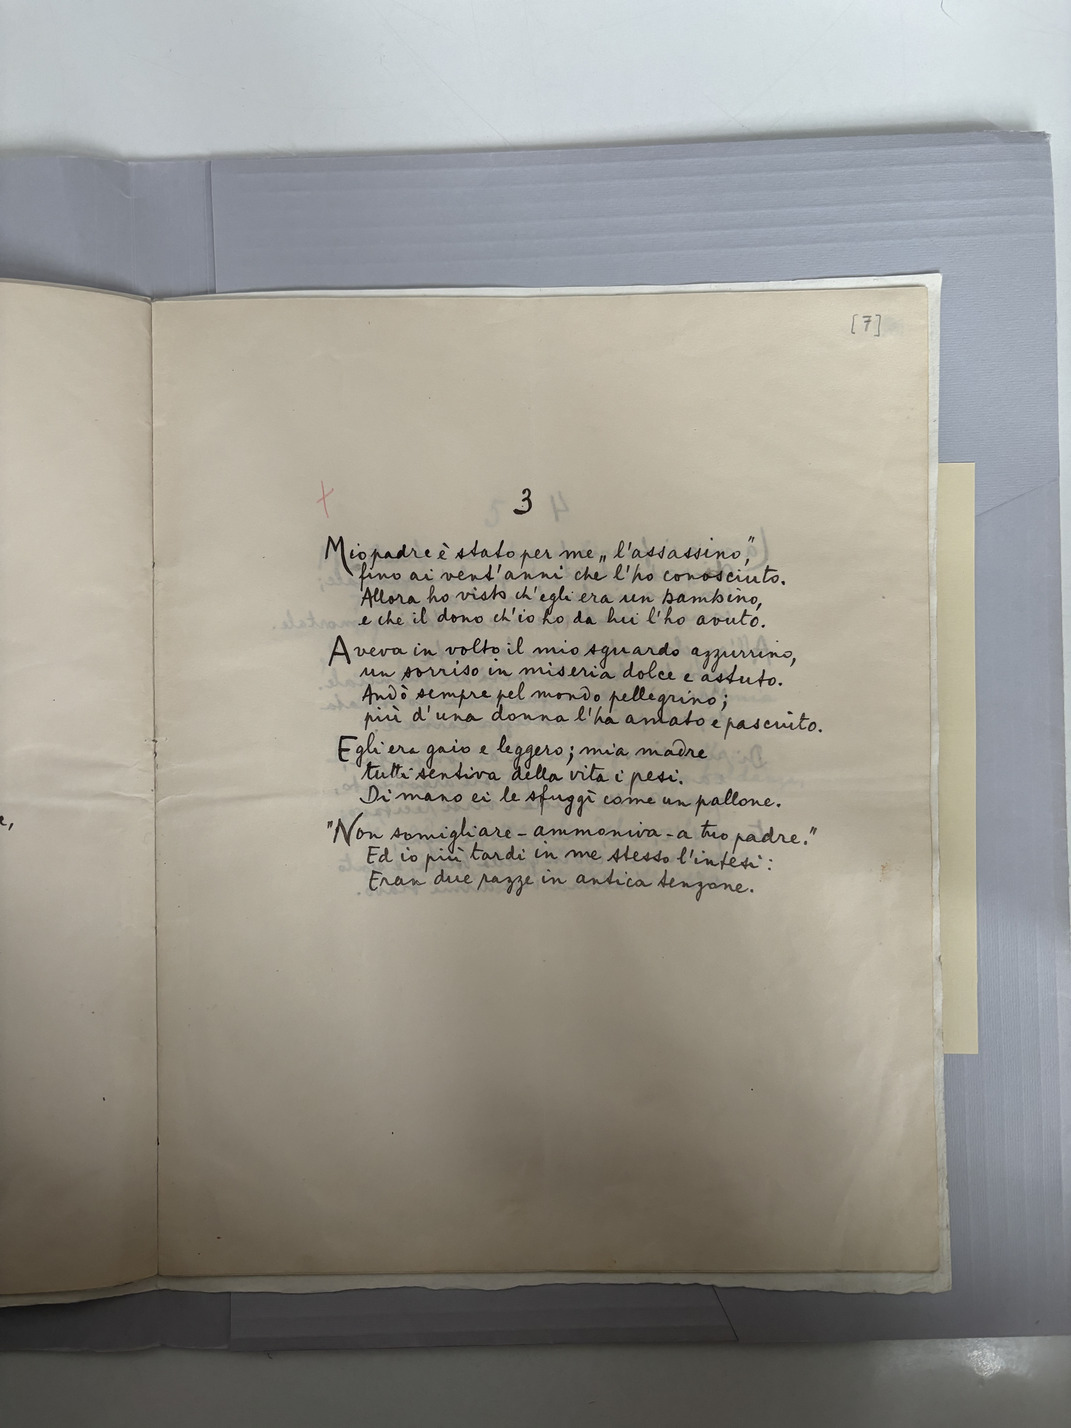 [7]
3
Mio padre è stato per me „l'assassino",
fino ai vent'anni che l'ho conosciuto.
Allora ho visto ch'egli era un bambino,
e che il dono ch'io ho da lui l'ho avuto.
Aveva in volto il mio sguardo azzurrino,
un sorriso in miseria dolce e astuto.
Andò sempre pel mondo pellegrino;
più d'una donna l'ha amato e pasciuto.
Egli era gaio e leggero; mia madre
tutti sentiva della vita i pesi.
Di mano ei le sfuggì come un pallone.
"Non somigliare - ammoniva - a tuo padre."
Ed io più tardi in me stesso l'intesi:
Eran due razze in antica tenzone.